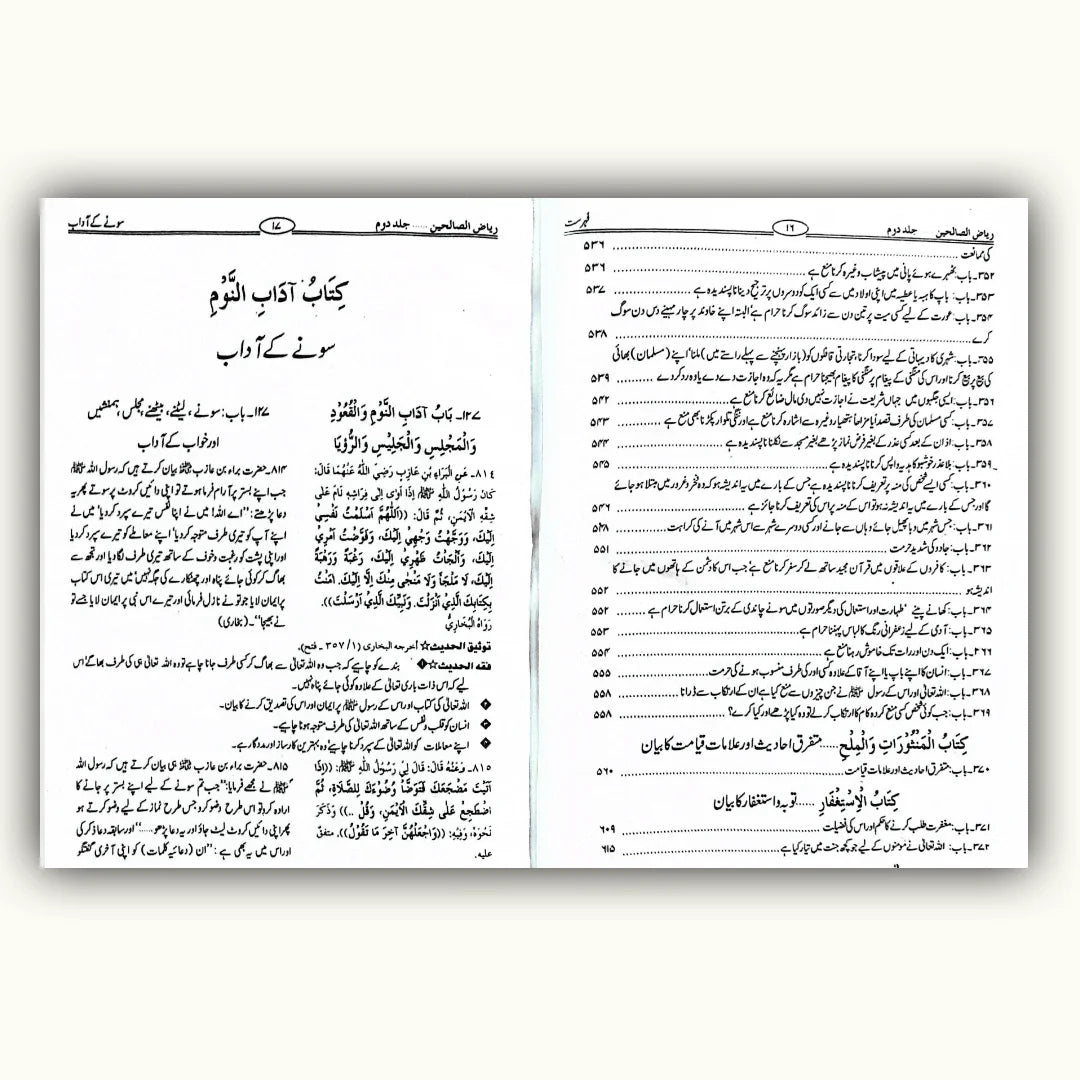 ریاض الصالحین جلد دوم ۱۶ فہرست
کی ممانعت ۵۳۶
۳۵۲۔ باب: ٹھہرے ہوئے پانی میں پیشاب وغیرہ کرنا منع ہے ۵۳۶
۳۵۳۔ باب: باپ کا ہبہ یا عطیہ میں اپنی اولاد میں سے کسی ایک کو دوسروں پر ترجیح دینا ناپسندیدہ ہے ۵۳۷
۳۵۴۔ باب: عورت کے لیے کسی میت پر تین دن سے زائد سوگ کرنا حرام ہے البتہ اپنے خاوند پر چار مہینے دس دن سوگ
کرے ۵۳۸
۳۵۵۔ باب: شہری کا دیہاتی کے لیے سودا کرنا، تجارتی قافلوں کو (بازار پہنچنے سے پہلے راستے میں) ملنا اپنے (مسلمان) بھائی
کی بیع پر بیع کرنا اور اس کی منگنی کے پیغام پر منگنی کا پیغام بھیجنا حرام ہے مگر یہ کہ وہ اجازت دے دے یا وہ رد کر دے ۵۳۹
۳۵۶۔ باب: ایسی جگہوں میں جہاں شریعت نے اجازت نہیں دی مال ضائع کرنا منع ہے ۵۴۲
۳۵۷۔ باب: کسی مسلمان کی طرف قصداً یا مزاحاً ہتھیار وغیرہ سے اشارہ کرنا منع ہے اور ننگی تلوار پکڑنا بھی منع ہے ۵۴۳
۳۵۸۔ باب: اذان کے بعد کسی عذر کے بغیر فرض نماز پڑھے بغیر مسجد سے نکلنا ناپسندیدہ ہے ۵۴۴
۳۵۹۔ باب: بلا عذر خوشبو کا ہدیہ واپس کرنا ناپسندیدہ ہے ۵۴۵
۳۶۰۔ باب: کسی ایسے شخص کی منہ پر تعریف کرنا ناپسندیدہ ہے جس کے بارے میں یہ اندیشہ ہو کہ وہ فخر و غرور میں مبتلا ہو جائے
گا اور جس کے بارے میں یہ اندیشہ نہ ہو تو اس کے منہ پر اس کی تعریف کرنا جائز ہے ۵۴۶
۳۶۱۔ باب: جس شہر میں وبا پھیل جائے وہاں سے جانے اور کسی دوسرے شہر سے اس شہر میں آنے کی کراہت ۵۴۸
۳۶۲۔ باب: جادو کی شدید حرمت ۵۵۱
۳۶۳۔ باب: کافروں کے علاقوں میں قرآن مجید ساتھ لے کر سفر کرنا منع ہے جب اس کا دشمن کے ہاتھوں میں جانے کا
اندیشہ ہو ۵۵۲
۳۶۴۔ باب: کھانے پینے، طہارت اور استعمال کی دیگر صورتوں میں سونے چاندی کے برتن استعمال کرنا حرام ہے ۵۵۲
۳۶۵۔ باب: آدمی کے لیے زعفرانی رنگ کا لباس پہننا حرام ہے ۵۵۳
۳۶۶۔ باب: ایک دن اور رات تک خاموش رہنا منع ہے ۵۵۴
۳۶۷۔ باب: انسان کا اپنے باپ یا اپنے آقا کے علاوہ کسی اور کی طرف منسوب ہونے کی حرمت ۵۵۵
۳۶۸۔ باب: اللہ تعالیٰ اور اس کے رسول ﷺ نے جن چیزوں سے منع کیا ہے ان کے ارتکاب سے ڈرانا ۵۵۸
۳۶۹۔ باب: جب کوئی شخص کسی منع کردہ کام کا ارتکاب کر لے تو وہ کیا پڑھے اور کیا کرے؟ ۵۵۸
كِتَابُ الْمَنْثُورَاتِ وَالْمِلَحِ ..... متفرق احادیث اور علامات قیامت کا بیان
۳۷۰۔ باب: متفرق احادیث اور علامات قیامت ۵۶۰
كِتَابُ الْاِسْتِغْفَارِ ..... توبہ و استغفار کا بیان
۳۷۱۔ باب: مغفرت طلب کرنے کا حکم اور اس کی فضیلت ۶۰۹
۳۷۲۔ باب: اللہ تعالیٰ نے مومنوں کے لیے جو کچھ جنت میں تیار کیا ہے ۶۱۵
ریاض الصالحین ...... جلد دوم ۱۷ سونے کے آداب
كِتَابُ آدَابِ النَّوْمِ
سونے کے آداب
۱۲۷۔ بَابُ آدَابِ النَّوْمِ وَالْقُعُودِ
وَالْمَجْلِسِ وَالْجَلِيْسِ وَالرُّؤْيَا
۸۱٤۔ عَنِ الْبَرَاءِ بْنِ عَازِبٍ رَضِيَ اللَّهُ عَنْهُمَا قَالَ:
كَانَ رَسُوْلُ اللَّهِ ﷺ إِذَا أَوَى إِلَى فِرَاشِهِ نَامَ عَلَى
شِقِّهِ الْأَيْمَنِ، ثُمَّ قَالَ: ((اَللّٰهُمَّ أَسْلَمْتُ نَفْسِي
إِلَيْكَ، وَوَجَّهْتُ وَجْهِي إِلَيْكَ، وَفَوَّضْتُ أَمْرِي
إِلَيْكَ، وَأَلْجَأْتُ ظَهْرِي إِلَيْكَ، رَغْبَةً وَرَهْبَةً
إِلَيْكَ، لَا مَلْجَأَ وَلَا مَنْجٰى مِنْكَ إِلَّا إِلَيْكَ. آمَنْتُ
بِكِتَابِكَ الَّذِي أَنْزَلْتَ، وَنَبِيِّكَ الَّذِي أَرْسَلْتَ)).
رَوَاهُ الْبُخَارِيُّ
۱۲۷۔ باب: سونے، لیٹنے، بیٹھنے، مجلس، ہمنشیں
اور خواب کے آداب
۸۱۴۔ حضرت براء بن عازب بیان کرتے ہیں کہ رسول اللہ ﷺ
جب اپنے بستر پر آرام فرما ہوتے تو اپنی دائیں کروٹ پر سوتے پھر یہ
دعا پڑھتے: ’’اے اللہ! میں نے اپنا نفس تیرے سپرد کر دیا‘ میں نے
اپنے آپ کو تیری طرف متوجہ کر دیا‘ اپنے معاملے کو تیرے سپرد کر دیا
اور اپنی پشت کو رغبت و خوف کے ساتھ تیری طرف لگا دیا اور تجھ سے
بھاگ کر کوئی جائے پناہ اور چھٹکارے کی جگہ نہیں‘ میں تیری اس کتاب
پر ایمان لایا جو تو نے نازل فرمائی اور تیرے اس نبی پر ایمان لایا جسے تو
نے بھیجا‘‘۔ (بخاری)
توثیق الحدیث ☆ أخرجه البخاري (۱/۳۵۷۔ فتح).
فقه الحدیث ☆ ❶ بندے کو چاہیے کہ جب وہ اللہ تعالیٰ سے بھاگ کر کسی طرف جانا چاہے تو وہ اللہ تعالیٰ ہی کی طرف بھاگے‘ اس
لیے کہ اس ذات باری تعالیٰ کے علاوہ کوئی جائے پناہ نہیں۔
❷ اللہ تعالیٰ کی کتاب اور اس کے رسول ﷺ پر ایمان اور اس کی تصدیق کرنے کا بیان۔
❸ انسان کو قلب و نفس کے ساتھ اللہ تعالیٰ کی طرف متوجہ ہونا چاہیے۔
❹ اپنے معاملات کو اللہ تعالیٰ کے سپرد کرنا چاہیے وہ بہترین کارساز اور مددگار ہے۔
۸۱٥۔ وَعَنْهُ قَالَ: قَالَ لِي رَسُوْلُ اللَّهِ ﷺ: ((إِذَا
أَتَيْتَ مَضْجَعَكَ فَتَوَضَّأْ وُضُوْءَكَ لِلصَّلَاةِ، ثُمَّ
اضْطَجِعْ عَلَى شِقِّكَ الْأَيْمَنِ، وَقُلْ ..)) وَذَكَرَ
نَحْوَهُ، وَفِيْهِ: ((وَاجْعَلْهُنَّ آخِرَ مَا تَقُوْلُ)). متفق
عليه.
۸۱۵۔ حضرت براء بن عازب ہی بیان کرتے ہیں کہ رسول اللہ
ﷺ نے مجھے فرمایا: ’’جب تم سونے کے لیے اپنے بستر پر جانے کا
ارادہ کرو تو اس طرح وضو کرو جس طرح نماز کے لیے وضو کرتے ہو
پھر اپنی دائیں کروٹ لیٹ جاؤ اور یہ دعا پڑھو ......‘‘ اور سابقہ دعا ذکر کی
اور اس میں یہ بھی ہے: ’’ان (دعائیہ کلمات) کو اپنی آخری گفتگو